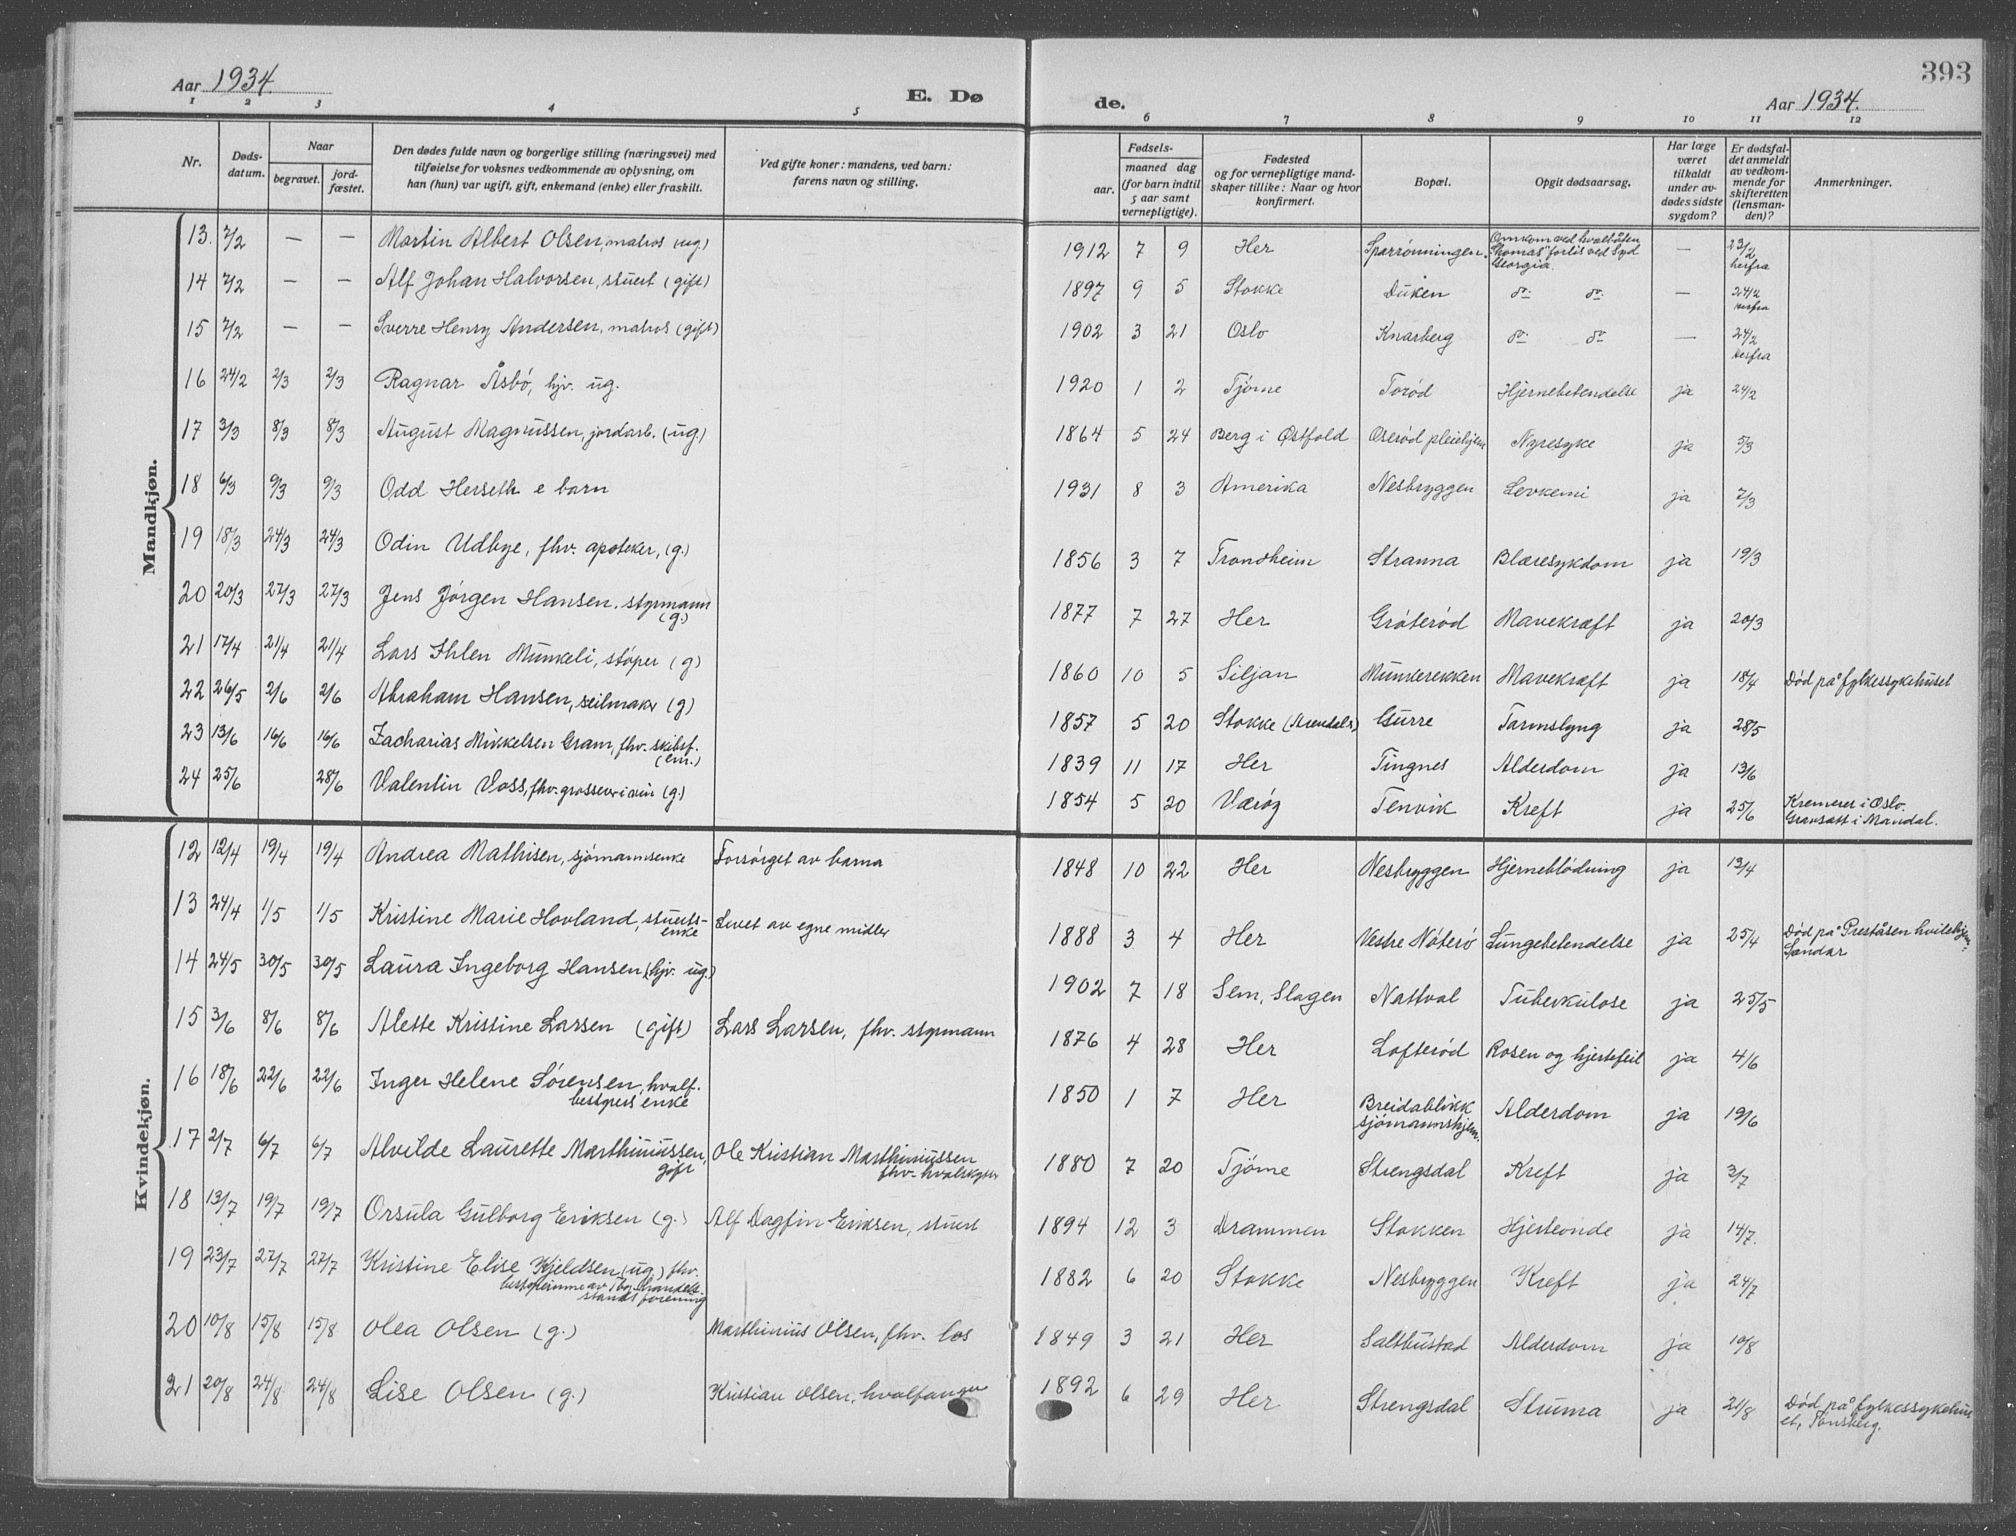 Aar 1934.
E. Dø
de.
393
Aar 1934.
1 2 3 4 5 6 7 8 9 10 11 12
Nr.
Døds-
datum.
Naar
begravet.
jord-
fæstet.
Den dødes fulde navn og borgerlige stilling (næringsvei) med
tilføielse for voksnes vedkommende av oplysning, om
han (hun) var ugift, gift, enkemand (enke) eller fraskilt.
Ved gifte koner: mandens, ved barn:
farens navn og stilling.
Fødsels-
aar.
maaned dag
(for barn indtil
5 aar samt
vernepligtige).
Fødested
og for vernepligtige mand-
skaper tillike: Naar og hvor
konfirmert.
Bopæl.
Opgit dødsaarsag.
Har læge
været
tilkaldt
under av-
dødes sidste
sygdom?
Er dødsfal-
det anmeldt
av vedkom-
mende for
skifteretten
(lensman-
den)?
Anmerkninger.
Mandkjøn.
13. 7/2 — — Martin Albert Olsen, matros (ug) 1912 7 9 Her Sparrønningen. Omkom ved hvalbåten "Thomas" forlis ved Syd Georgia. — 23/2 herfra
14 7/2 — — Alf Johan Halvorsen, stuert (gift) 1897 9 5 Stokke Duken do do — 24/2 herfra
15 7/2 — — Sverre Henry Andersen, matros (gift) 1902 3 21 Oslo Knarberg do do — 24/2 herfra
16 24/2 2/3 2/3 Ragnar Åsbø, hjv. ug. 1920 1 2 Tjøme Torød Hjernebetendelse ja 24/2
17 3/3 8/3 8/3 August Magnussen, jordarb. (ug.) 1864 5 24 Berg i Østfold Oserød pleiehjem Nyresyke ja 5/3
18 6/3 9/3 9/3 Odd Herseth e barn 1931 8 3 Amerika Nesbryggen Levkemi ja 7/3
19 18/3 24/3 24/3 Odin Udbye, fhv. apoteker, (g.) 1856 3 7 Trondheim Stranna Blæresykdom ja 19/3
20 20/3 27/3 27/3 Jens Jørgen Hansen, styrmann (g.) 1877 7 27 Her Grøterød Mavekræft ja 20/3
21 17/4 21/4 21/4 Lars Ihlen Munkeli, støper (g) 1860 10 5 Siljan Munkerekken Mavekræft ja 18/4 Død på fylkessykehuset
22 26/5 2/6 2/6 Abraham Hansen, seilmaker (g) 1857 5 20 Stokke (Arendals) Gurre Tarmslyng ja 28/5
23 13/6 16/6 16/6 Zacharias Mikkelsen Gram, fhv. skibsf. (em.) 1839 11 17 Her Tingnes Alderdom ja 13/6
24 25/6 28/6 Valentin Voss, fhv. grosserer i vin (g.) 1854 5 20 Værøy Tenvik Kreft ja 25/6 Kremeret i Oslo. Gravsatt i Mandal.
Kvindekjøn.
12 12/4 19/4 19/4 Andrea Mathisen, sjømannsenke Forsørget av barna 1848 10 22 Her Nesbryggen Hjerneblødning ja 13/4
13 24/4 1/5 1/5 Kristine Marie Hovland, stuerts-enke Levet av egne midler 1888 3 4 Her Vestre Nøterø Lungebetendelse ja 25/4 Død på Preståsen hvilehjem, Sandar
14 24/5 30/5 30/5 Laura Ingeborg Hansen (hjv. ug.) 1902 7 18 Sem, Slagen Nattval Tuberkulose ja 25/5
15 3/6 8/6 8/6 Alette Kristine Larsen (gift) Lars Larsen, fhv. styrmann 1876 4 28 Her Lofterød Rosen og hjertefeil ja 4/6
16 18/6 22/6 22/6 Inger Helene Sørensen, hvalf. bestyrers enke 1850 1 7 Her Breidablikk sjømannshjem. Alderdom ja 19/6
17 2/7 6/7 6/7 Alvilde Laurette Marthiniussen, gift Ole Kristian Marthiniussen fhv. hvalskytter 1880 7 20 Tjøme Strengsdal Kreft ja 3/7
18 13/7 19/7 19/7 Orsula Gulborg Eriksen (g.) Alf Dagfin Eriksen, stuert 1894 12 3 Drammen Stokken Hjerteonde ja 14/7.
19 23/7 27/7 27/7 Kristine Elise Kjeldsen, (ug.) fhv. bestyrerinne av Tbg. Handels-stands forening 1882 6 20 Stokke Nesbryggen Kreft ja 24/7
20 10/8 15/8 15/8 Olea Olsen (g.) Marthinius Olsen, fhv. los 1849 3 21 Her Salthustad Alderdom ja 10/8
21 20/8 24/8 24/8 Lise Olsen (g.) Kristian Olsen, hvalfanger 1892 6 29 Her Strengsdal Struma ja 21/8 Død på fylkessykehuset, Tønsberg.